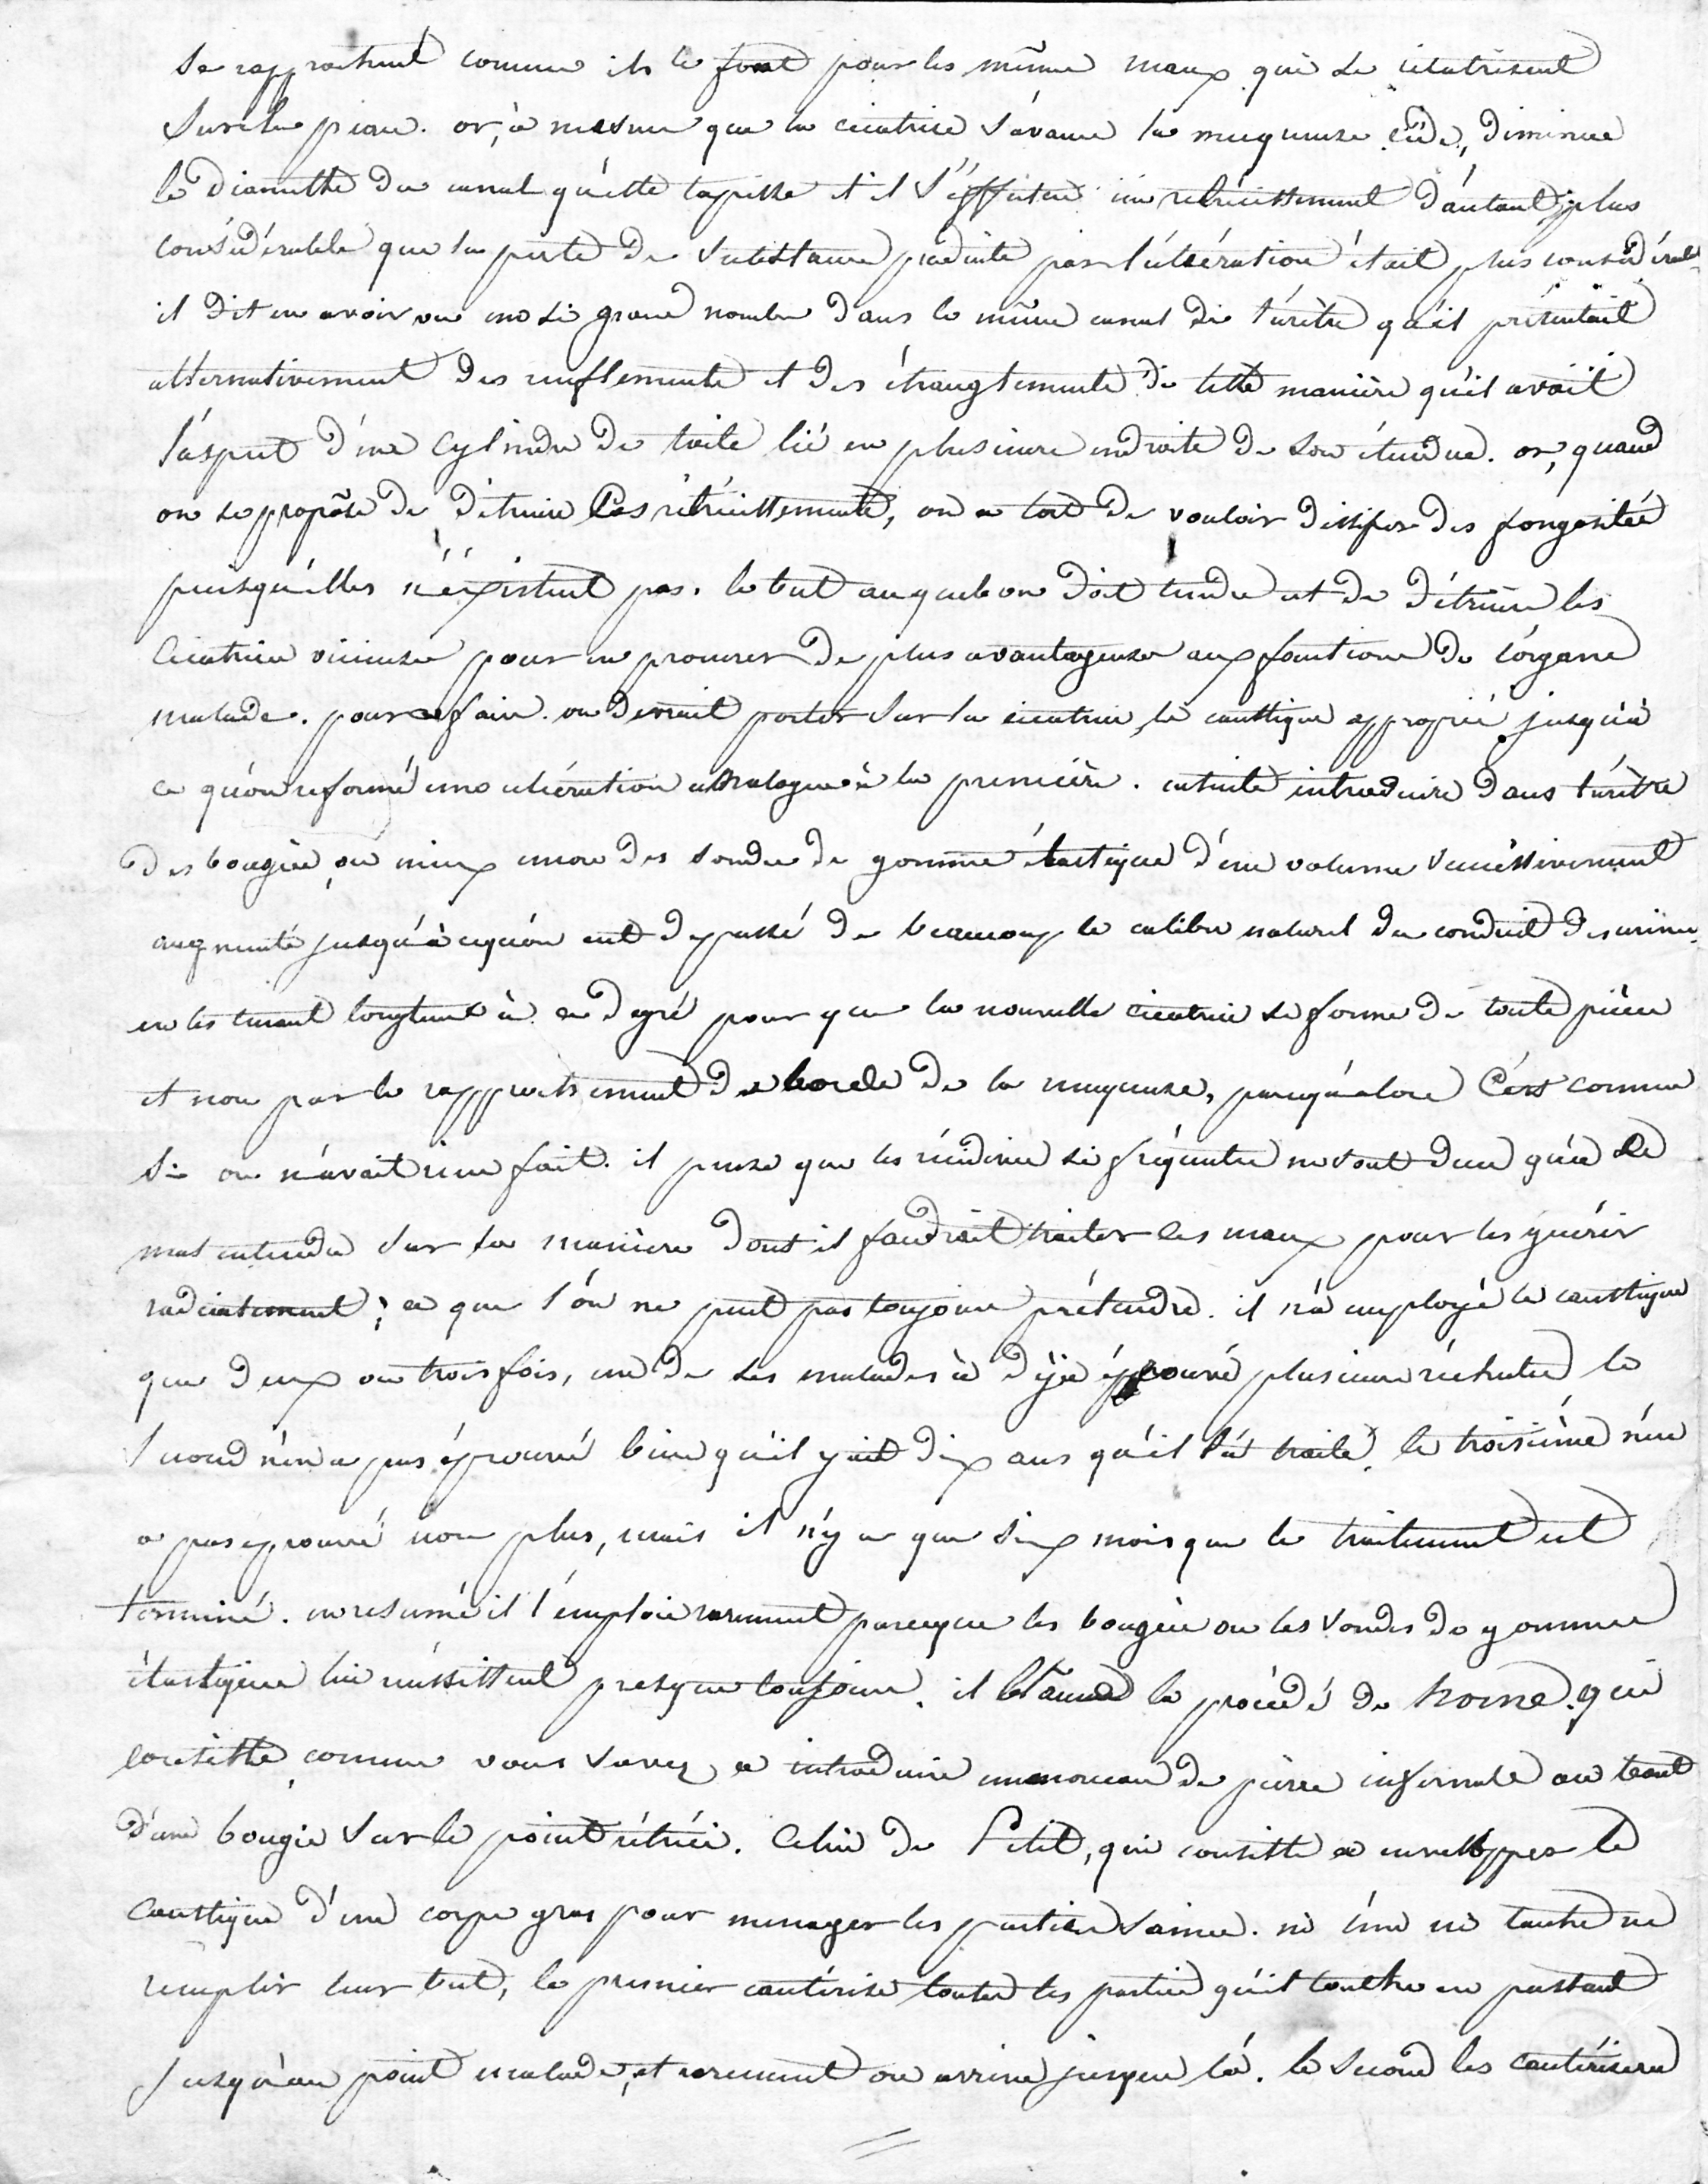 se rapprochent comme ils le font pour les même maux qui se cicatrisent
sur la peau. or, à mesure que la cicatrice s'avance la muqueuse cède, diminue
le diamètre du canal qu'elle tapisse et il s'effectue un rétrécissement d'autant plus
considérable que la perte de substance produite par l'ulcération était plus considérable
il dit en avoir vu un si grand nombre dans le même canal de l'urètre qu'il présentait
alternativement des renflements et des étranglements de telle manière qu'il avait
l'aspect d'un cylindre de toile lié en plusieurs endroits de son étendue. or, quand
on se propose de détruire ces rétrécissements, on a tort de vouloir dissiper des fongosités
puisqu'elles n'éxistent pas. le but auquel on doit tendre est de détruire les
cicatrices vicieuses pour en procurer de plus avantageuses aux fonctions de l'organe
malade. pour ce faire on devrait porter sur la cicatrice le caustique approprié jusqu'à
ce qu'on ait formé une ulcération analogue à la première. ensuite introduire dans l'urètre
des bougies ou mieux encore des sondes de gomme élastique d'un volume successivement
augmenté jusqu'à ce qu'on eut dépassé de beaucoup le calibre naturel du conduit des urines
en les tenant longtems à ce degré pour que la nouvelle cicatrice se forme de toute pièce
et non par le rapprochement des bords de la muqueuse, parcequ'alors c'est comme
si on n'avait rien fait. il pense que les récidives si fréquentes ne sont dues qu'à ce
mal entendu sur la manière dont il faudrait traiter les maux pour les guérir
radicalement; ce que l'on ne peut pas toujours prétendre. il n'a employé le caustique
que deux ou trois fois, un de ses malades a déjà éprouvé plusieurs rechutes le
second n'en a pas éprouvé bien qu'il y ait dix ans qu'il l'a traité. le troisième n'en
a pas éprouvé non plus, mais il n'y a que six mois que le traitement est
terminé. en resumé il l'emploie rarement parceque les bougies ou les sondes de gomme
élastique lui réussissent presque toujours. il blame le procédé de home. qui
consiste comme vous savez, a introduire un morceau de pierre infernale au bout
d'une bougie sur le point rétréci. Celui de Petit, qui consiste a envelopper le
caustique d'un corps gras pour menager les parties saines. ni l'un ni l'autre ne
remplir leur but, le premier cautérise toutes les parties qu'il touche en passant
jusqu'au point malade, et rarement on arrive jusque là. le second les cautérisera